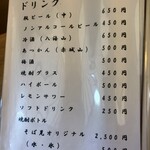 ドリンク
瓶ビール(中) 650円
ノンアルコールビール 400円
冷酒(八海山) 650円
あつかん(赤城山) 500円
梅酒 500円
焼酎グラス 450円
ハイボール 450円
レモンサワー 400円
ソフトドリンク 250円
焼酎ボトル
そば見オリジナル 2,300円
(水・氷) 300円